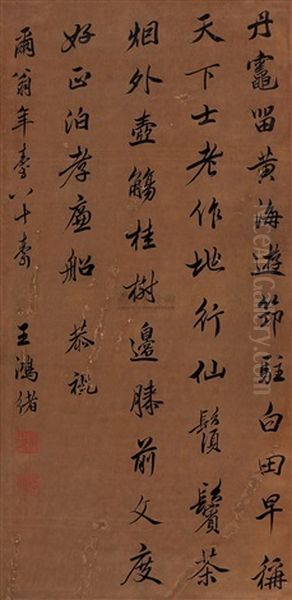 丹竈留黃海遊筇駐白田早稱
天下士老作地行仙鬚鬢茶
烟外壺觴桂樹邊膝前文度
好正泊孝廉船 恭祝
爾翁年八十壽 王鴻緒